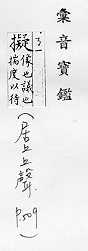 彙音寶鑑
擬
像也議也
揣度以待
(居上上聲 P.509)